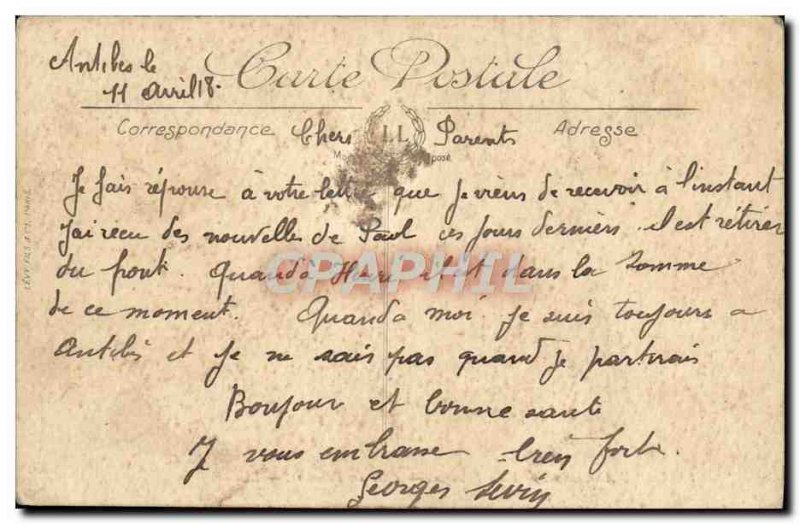 Antibes le
11 avril 18.
Carte Postale
Correspondance Chers LL Parents Adresse
Je fais réponse à votre lettre que je viens de recevoir à l'instant
J'ai recu des nouvelles de Paul ces jours derniers il est rétirer
du front. Quand à Henri il est dans la Somme
de ce moment. Quand a moi je suis toujours a
Antibes et je ne sais pas quand je partirais
Bonjour et bonne sante
J vous embrasse bien fort.
Georges
CPAPHIL
LEVY FILS & Cie PARIS